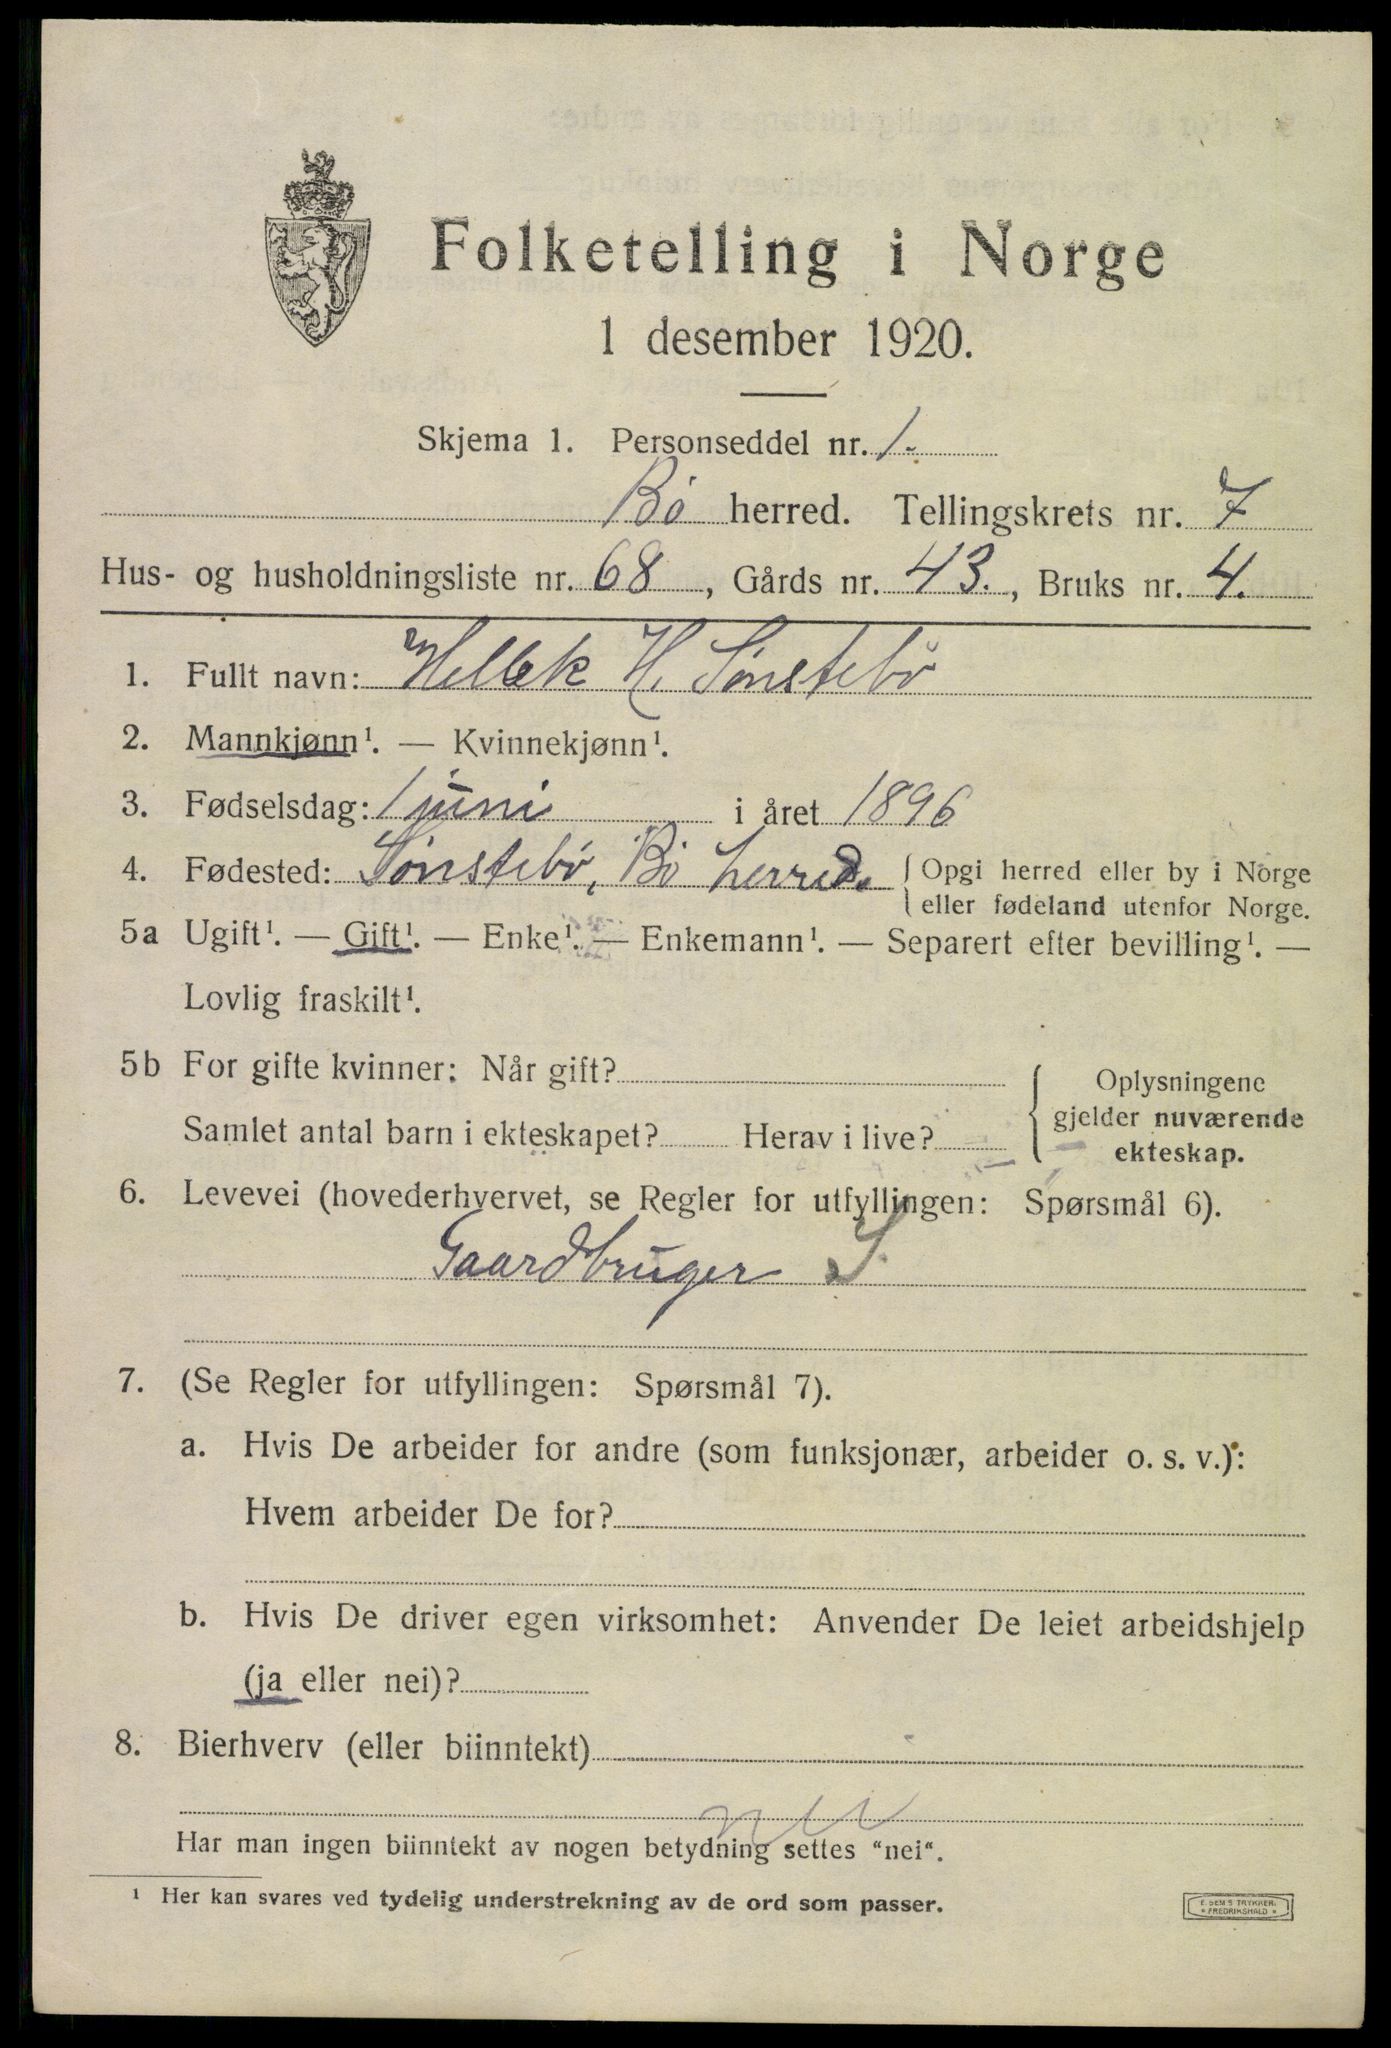 Folketelling i Norge
1 desember 1920.
Skjema 1. Personseddel nr. 1.
Bö herred. Tellingskrets nr. 7
Hus- og husholdningsliste nr. 68, Gårds nr. 43., Bruks nr. 4.
1. Fullt navn: Hellek H. Sönstebö
2. Mannkjønn¹. — Kvinnekjønn¹.
3. Fødselsdag: 1 juni i året 1896
4. Fødested: Sönstebö, Bö herred. { Opgi herred eller by i Norge
eller fødeland utenfor Norge.
5a Ugift¹. — Gift¹. — Enke¹. — Enkemann¹. — Separert efter bevilling¹. —
Lovlig fraskilt¹.
5b For gifte kvinner: Når gift? { Oplysningene
gjelder nuværende
ekteskap.
Samlet antal barn i ekteskapet? Herav i live?
6. Levevei (hovederhvervet, se Regler for utfyllingen: Spørsmål 6).
Gaardbruger S.
7. (Se Regler for utfyllingen: Spørsmål 7).
a. Hvis De arbeider for andre (som funksjonær, arbeider o. s. v.):
Hvem arbeider De for?
b. Hvis De driver egen virksomhet: Anvender De leiet arbeidshjelp
(ja eller nei)?
8. Bierhverv (eller biinntekt)
nei
Har man ingen biinntekt av nogen betydning settes “nei“.
¹ Her kan svares ved tydelig understrekning av de ord som passer.
E. SEM'S TRYKKERI
* FREDRIKSHALD *